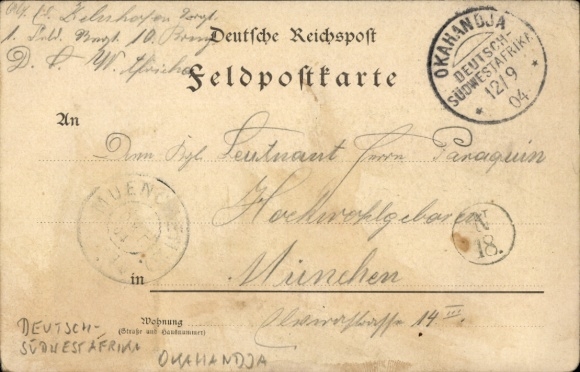 Deutsche Reichspost
1. Feld 10.
D. S. W. Afrika
Feldpostkarte
OKAHANDJA
DEUTSCH-
SÜDWESTAFRIKA
12/9
04
An
Dem Kgl. Leutnant Herrn Paraquin
Hochwohlgeboren
MUENCHEN
N
18.
in München
Wohnung
(Straße und Hausnummer)
14 III
DEUTSCH-
SÜDWESTAFRIKA
OKAHANDJA